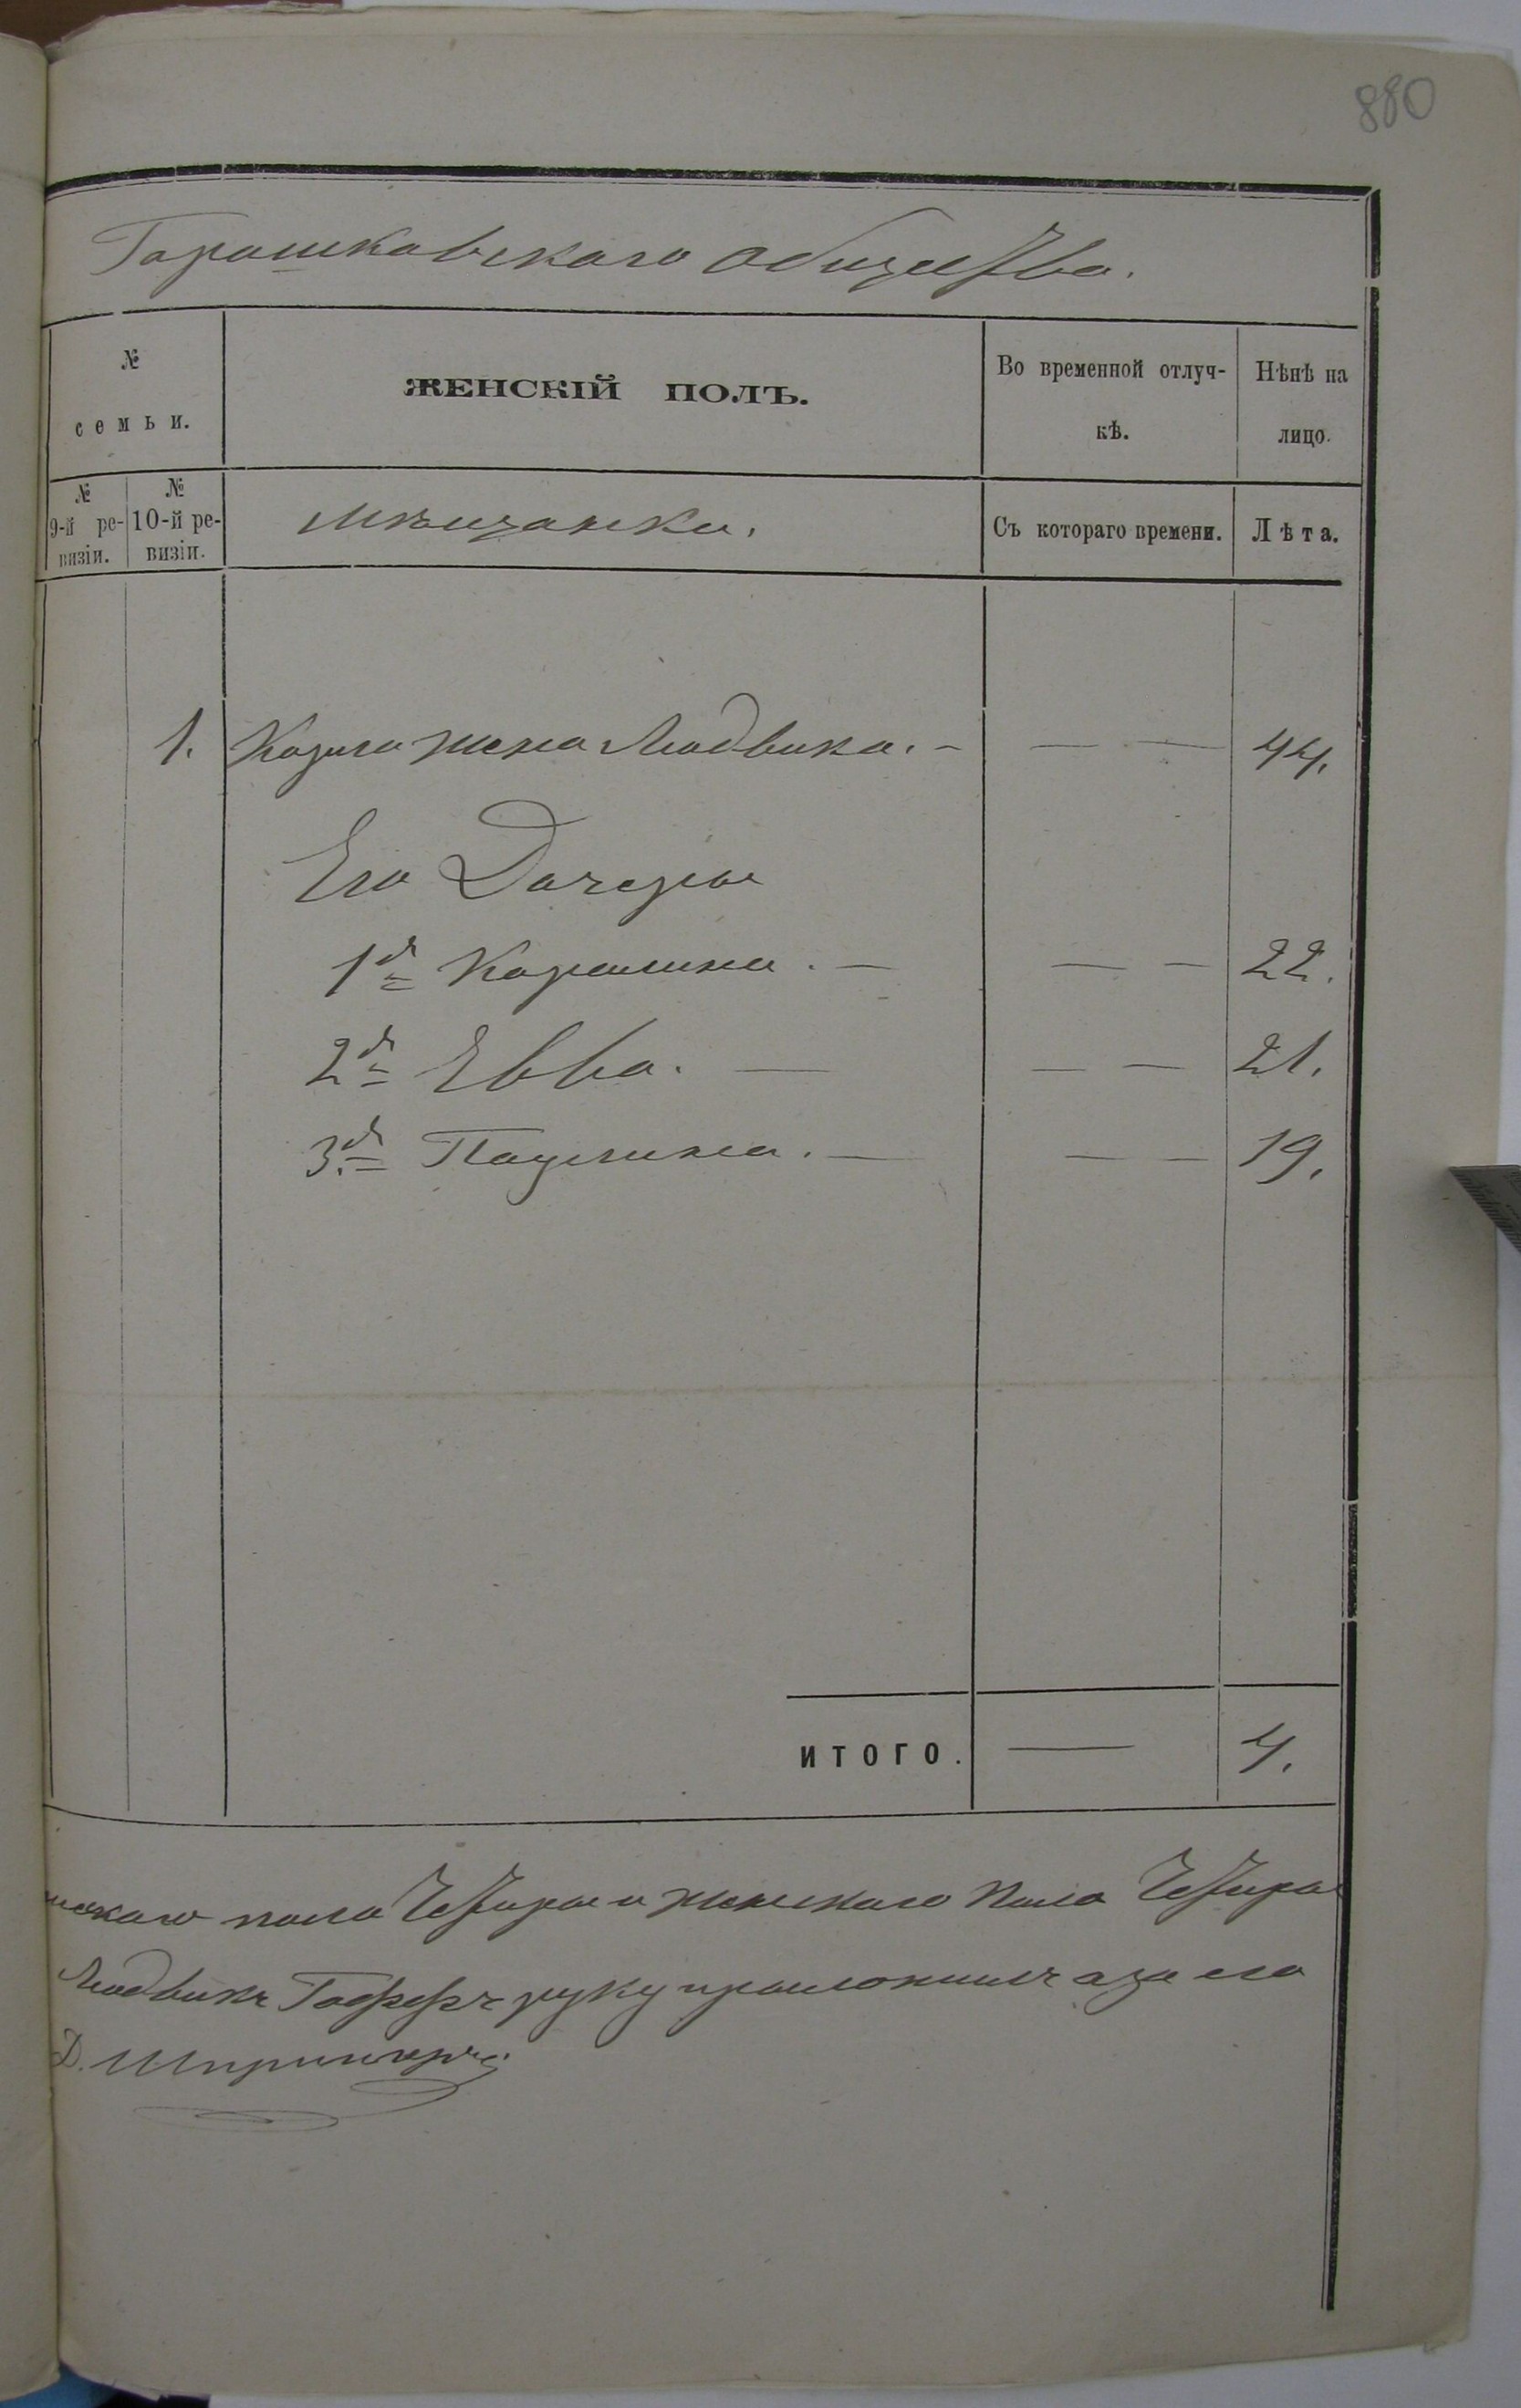 880
Горошковскаго общества.
№
семьи.
ЖЕНСКІЙ ПОЛЪ.
Во временной отлуч-
кѣ.
Нѣнѣ на
лицо.
№
9-й ре-
визіи.
№
10-й ре-
визіи.
Мѣщанки.
Съ котораго времени.
Лѣта.
1. жена Людвика. — — — 44.
Его Дочери
1я Каролина. — — — 22.
2я Евва. — — — 21.
3я Паулина. — — — 19.
ИТОГО. — 4.
пола Четыре и женскаго пола Четыре
Людвикъ руку приложилъ а за его
Д.